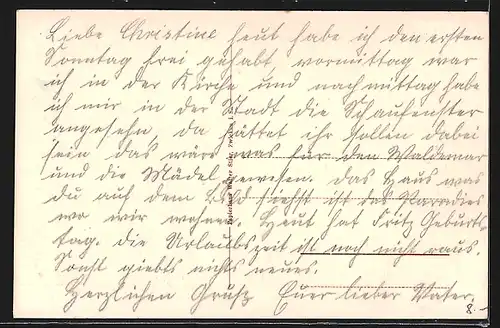 Liebe Christine heut habe ich den ersten
Sonntag frei gehabt vormittag war
ich in der Kirche und nachmittag habe
ich mir in der Stadt die Schaufenster
angesehn, da hättet ihr sollen dabei
sein das wäre was für den Waldemar
und die Mädel gewesen. Das Haus was
du auf dem Bild siehst ist das Paradies
wo wir wohnen. Heut hat Fritz Geburts
tag. die Urlaubszeit ist noch nicht raus.
Sonst giebts nichts neues.
Herzlichen Gruß Euer lieber Vater.
8.-